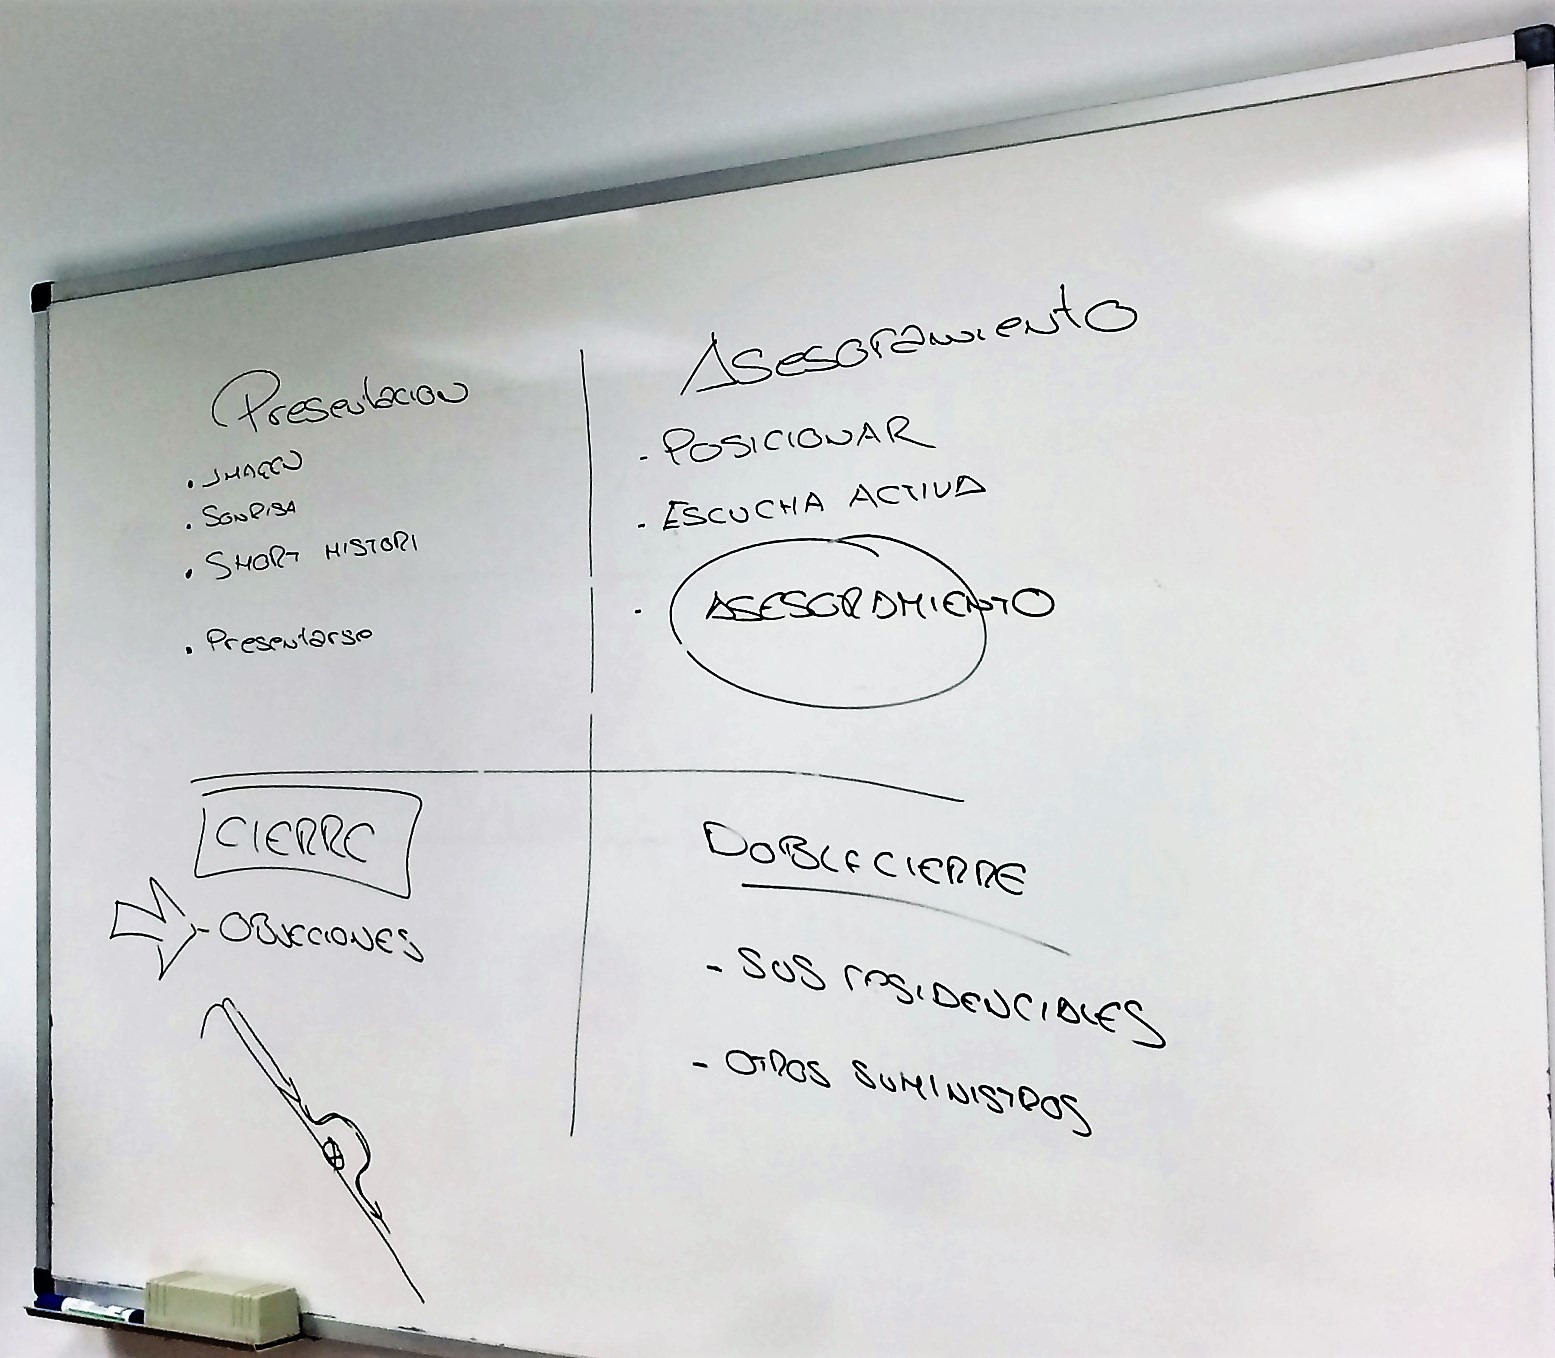 Presentacion
. IMAGEN
. SONRISA
. SHORT HISTORI
. Presentarse
Asesoramiento
- POSICIONAR
- ESCUCHA ACTIVA
. ASESORAMIENTO
CIERRE
- OBJECIONES
DOBLE CIERRE
- SUS RESIDENCIALES
- OTROS SUMINISTROS